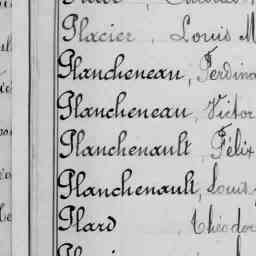 Placier, Louis M
Plancheneau, Ferdina
Plancheneau, Victor
Planchenault, Félix
Planchenault, Louis
Plard Théodor